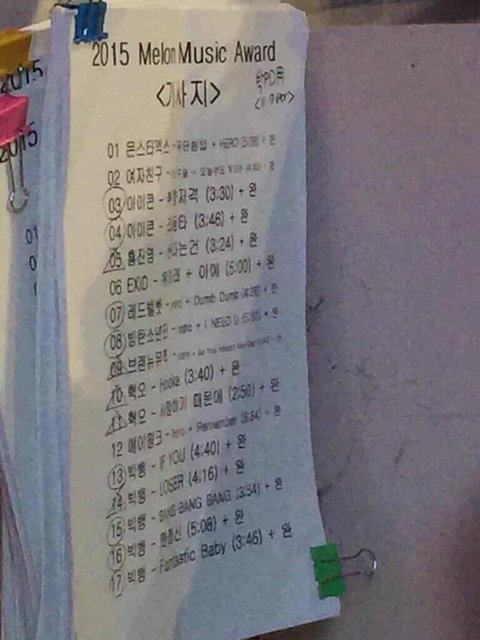 2015 Melon Music Award
<가사지>
박PD목
01 몬스타엑스 - 무단침입 + HERO + 완
02 여자친구 - 오늘부터 우리는 + 완
03 아이콘 - 취향저격 (3:30) + 완
04 아이콘 - 리듬타 (3:46) + 완
05 홍진영 - 산다는건 (3:24) + 완
06 EXID - 위아래 + 아예 (5:00) + 완
07 레드벨벳 - intro + Dumb Dumb (4:28) + 완
08 방탄소년단 - intro + I NEED U + 완
09 브랜뉴뮤직 - + 완
10 혁오 - Hooka (3:40) + 완
11 혁오 - 사랑하기 때문에 (2:50) + 완
12 에이핑크 - intro + Remember + 완
13 빅뱅 - IF YOU (4:40) + 완
14 빅뱅 - LOSER (4:16) + 완
15 빅뱅 - BANG BANG BANG (3:54) + 완
16 빅뱅 - 맨정신 (5:08) + 완
17 빅뱅 - Fantastic Baby (3:46) + 완
2015
2015
01
0
0